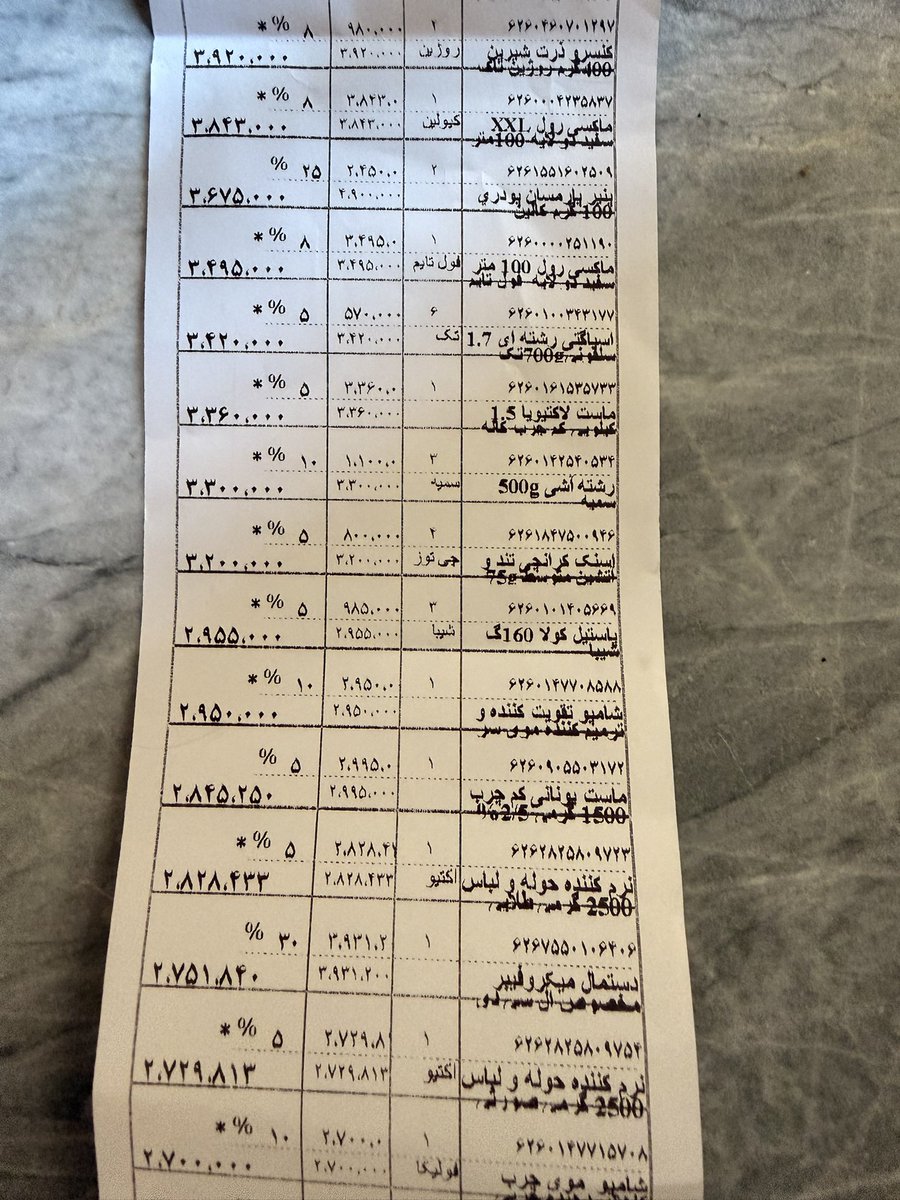 ۶۲۶۰۴۶۰۷۰۱۲۹۷ ۹۸۰،۰۰۰ ۸ % *
کنسرو ذرت شیرین روژین ۳،۹۲۰،۰۰۰ ۳،۹۲۰،۰۰۰
400گرم روژین تاک
۶۲۶۰۰۰۴۲۳۵۸۳۷ ۱ ۳،۸۴۳،۰ ۸ % *
ماکسی رول XXL کیولین ۳،۸۴۳،۰۰۰ ۳،۸۴۳،۰۰۰
سفید دو لایه 100متر
۶۲۶۱۵۵۱۶۰۲۵۰۹ ۲ ۲،۴۵۰،۰ ۲۵ %
پنیر پارمسان پودري ۴،۹۰۰،۰۰۰ ۳،۶۷۵،۰۰۰
100 گرم کالین
۶۲۶۰۰۰۰۲۵۱۱۹۰ ۱ ۳،۴۹۵،۰ ۸ % *
ماکسی رول 100 متر فول تایم ۳،۴۹۵،۰۰۰ ۳،۴۹۵،۰۰۰
سفید دو لایه فول تایم
۶۲۶۰۱۰۰۳۴۳۱۷۷ ۶ ۵۷۰،۰۰۰ ۵ % *
اسپاگتی رشته ای 1.7 تک ۳،۴۲۰،۰۰۰ ۳،۴۲۰،۰۰۰
سلفونی 700gتک
۶۲۶۰۱۶۱۵۳۵۷۳۳ ۱ ۳،۳۶۰،۰ ۵ % *
ماست لاکتیویا 1.5 ۳،۳۶۰،۰۰۰ ۳،۳۶۰،۰۰۰
کیلویی کم چرب کاله
۶۲۶۰۱۴۲۵۴۰۵۳۴ ۳ ۱،۱۰۰،۰ ۱۰ % *
رشته آشی 500g سمیه ۳،۳۰۰،۰۰۰ ۳،۳۰۰،۰۰۰
سمیه
۶۲۶۱۸۴۷۵۰۰۹۴۶ ۴ ۸۰۰،۰۰۰ ۵ % *
اسنک کرانچی تند و چی توز ۳،۲۰۰،۰۰۰ ۳،۲۰۰،۰۰۰
آتشین متوسط 75g
۶۲۶۰۱۰۱۴۰۵۶۶۹ ۳ ۹۸۵،۰۰۰ ۵ % *
پاستیل کولا 160گ شیبا ۲،۹۵۵،۰۰۰ ۲،۹۵۵،۰۰۰
شیبا
۶۲۶۰۱۴۷۷۰۸۵۸۸ ۱ ۲،۹۵۰،۰ ۱۰ % *
شامپو تقویت کننده و ۲،۹۵۰،۰۰۰ ۲،۹۵۰،۰۰۰
ترمیم کننده موی سر
۶۲۶۰۹۰۵۵۰۳۱۷۲ ۱ ۲،۹۹۵،۰ ۵ %
ماست یونانی کم چرب ۲،۹۹۵،۰۰۰ ۲،۸۴۵،۲۵۰
1500 گرمی 2/5%
۶۲۶۲۸۲۵۸۰۹۷۲۳ ۱ ۲،۸۲۸،۴۲ ۵ % *
نرم کننده حوله و لباس اکتیو ۲،۸۲۸،۴۳۳ ۲،۸۲۸،۴۳۳
2500 گرمی طلایی
۶۲۶۷۵۵۰۱۰۶۴۰۶ ۱ ۳،۹۳۱،۲ ۳۰ %
دستمال میکروفیبر ۳،۹۳۱،۲۰۰ ۲،۷۵۱،۸۴۰
مخصوص ال سی دی
۶۲۶۲۸۲۵۸۰۹۷۵۴ ۱ ۲،۷۲۹،۸۱ ۵ % *
نرم کننده حوله و لباس اکتیو ۲،۷۲۹،۸۱۳ ۲،۷۲۹،۸۱۳
2500 گرمی صورتی
۶۲۶۰۱۴۷۷۱۵۷۰۸ ۱ ۲،۷۰۰،۰ ۱۰ % *
شامپو موی چرب فولیکا ۲،۷۰۰،۰۰۰ ۲،۷۰۰،۰۰۰